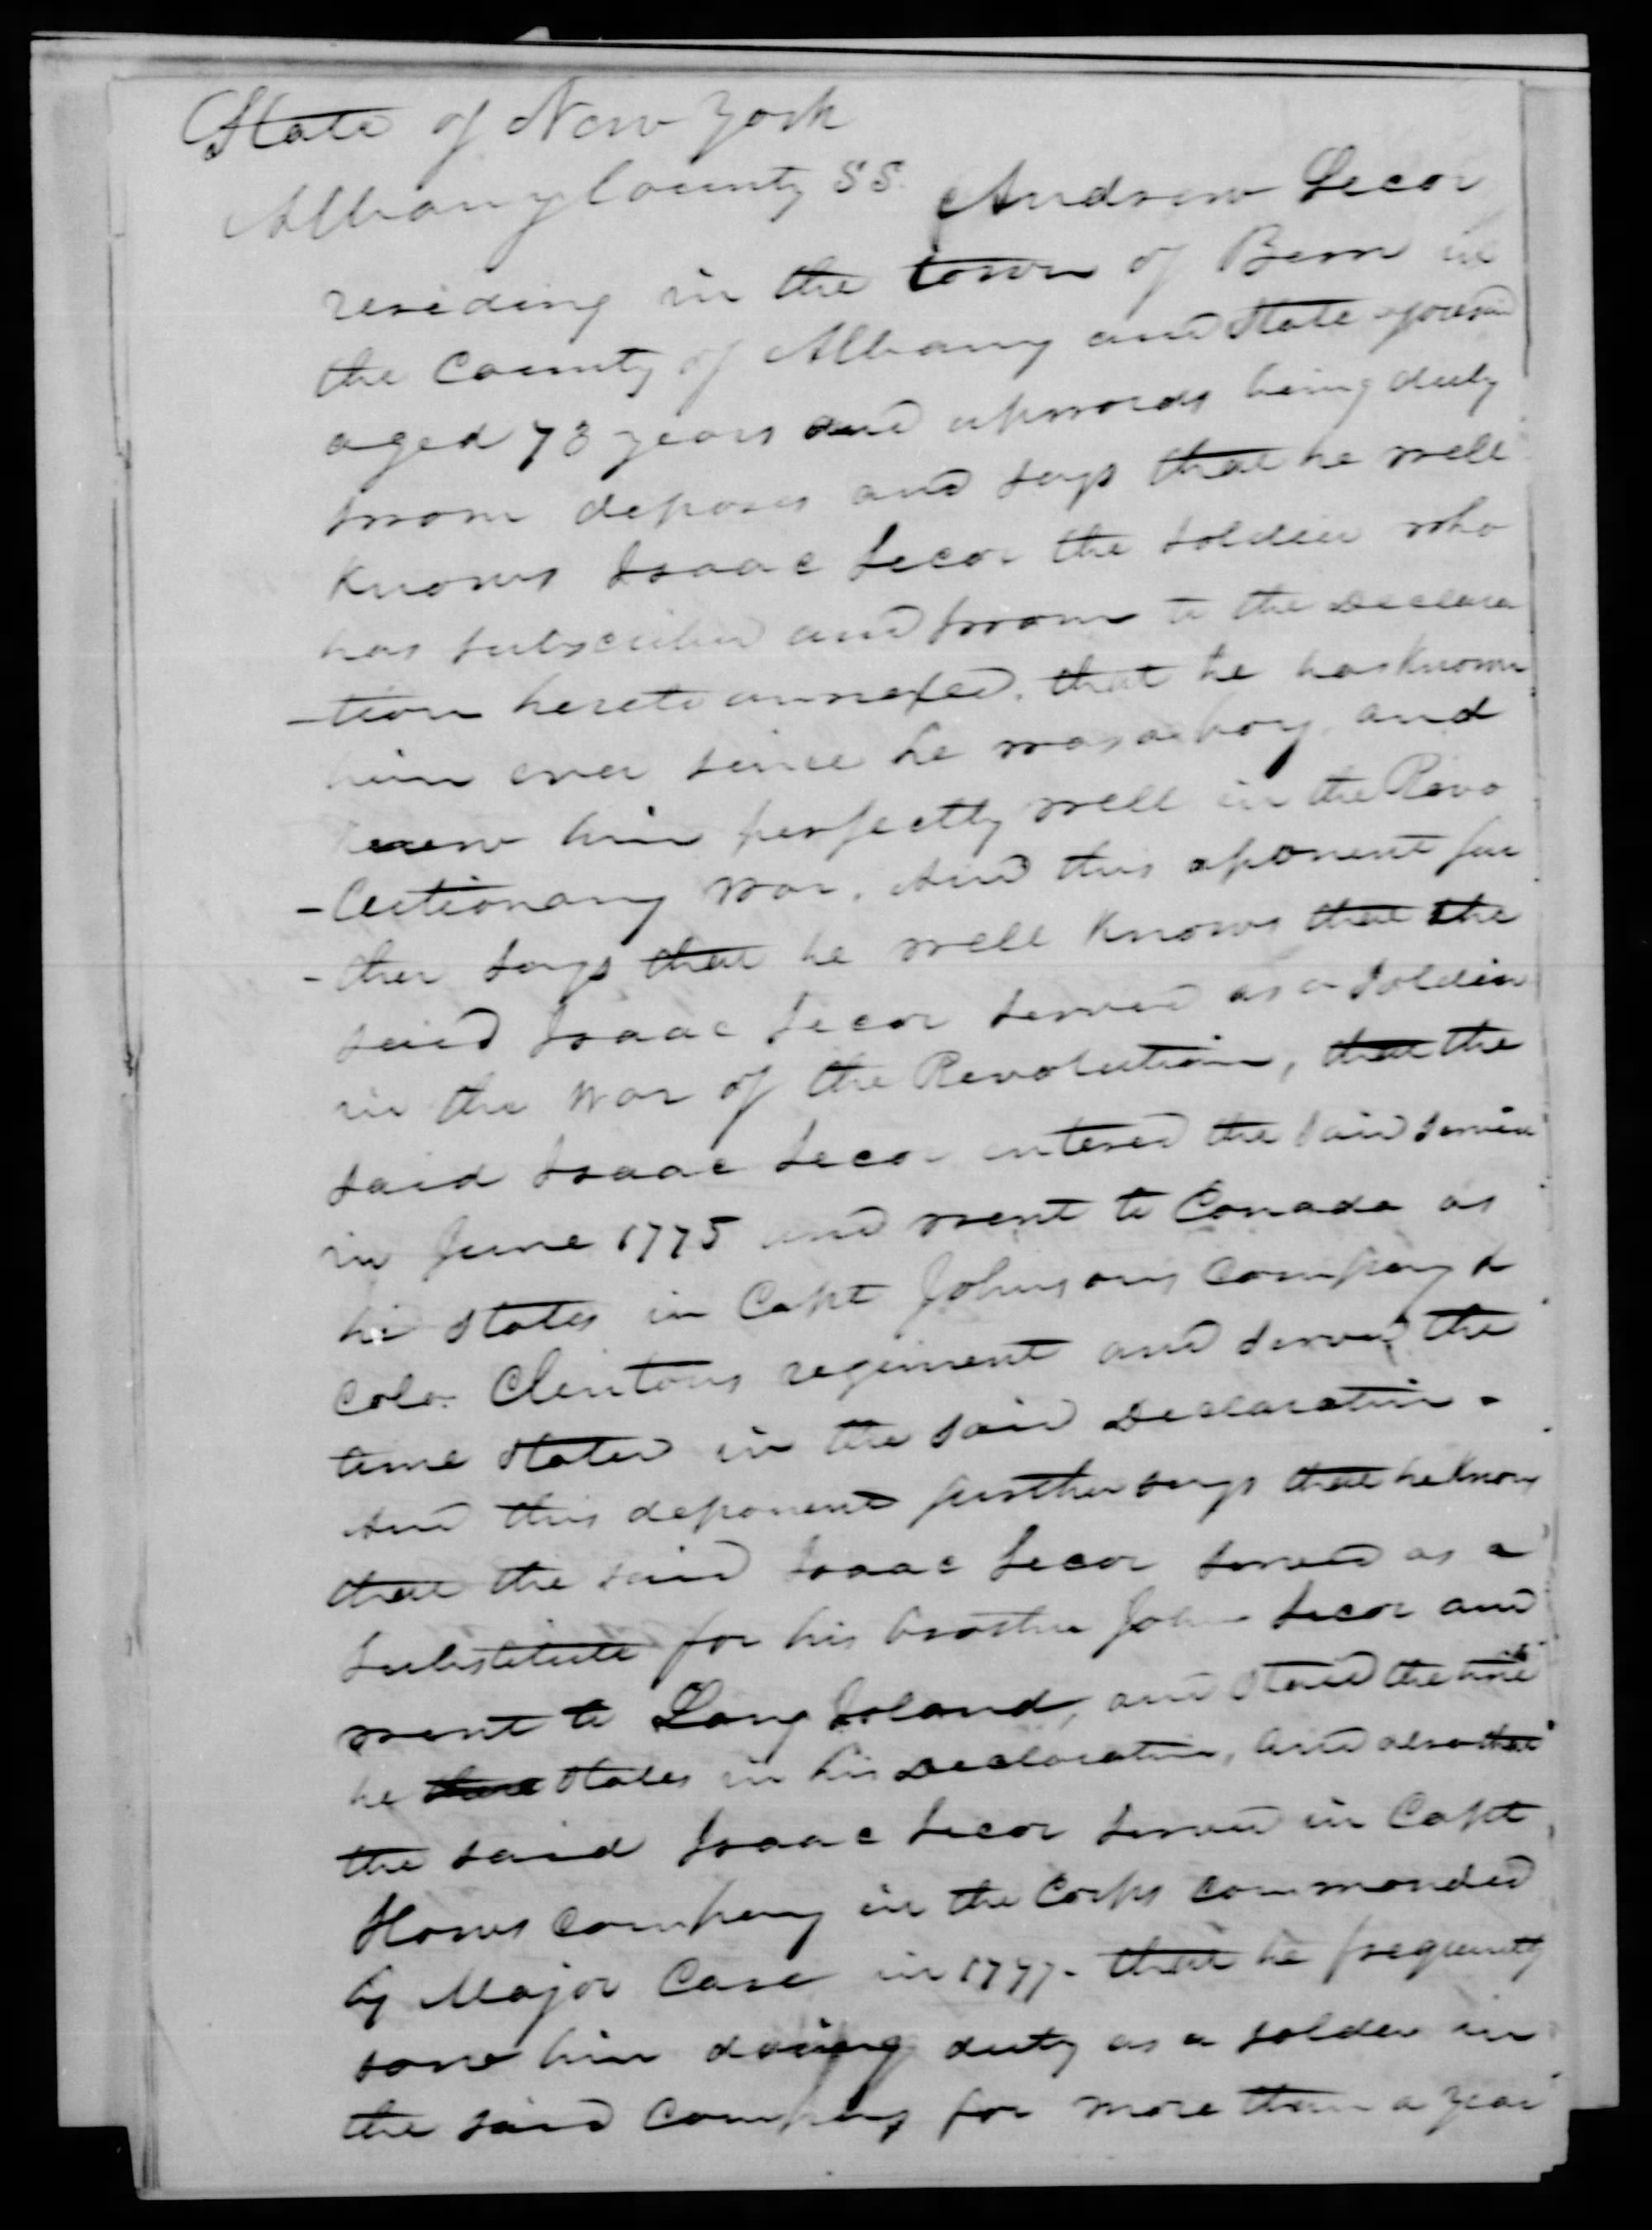 State of New York
Albany County SS. Andrew Secor
residing in the town of Bern in
the County of Albany and State aforesaid
aged 73 years and upwards being duly
sworn deposes and says that he well
knows Isaac Secor the soldier who
has subscribed and sworn to the Declara
-tion hereto annexed. that he has known
him ever since he was a boy, and
knew him perfectly well in the Revo
-lutionary war. And this aponent fur
-ther says that he well knows that the
said Isaac Secor served as a Soldier
in the war of the Revolution, that the
said Isaac Secor entered the said service
in June 1775 and went to Canada as
he states in Capt Johnsons Company &
Colo. Clintons regiment and served the
time stated in the said Declaration.
And this deponent further says that he knows
that the said Isaac Secor served as a
substitute for his brother John Secor and
went to Long Island, and staid the time
he states in his Declaration, and also that
the said Isaac Secor served in Capt
Hornes Company in the Corps commanded
by Major Case in 1777. that he frequently
saw him doing duty as a solder in
the said Company for more than a year